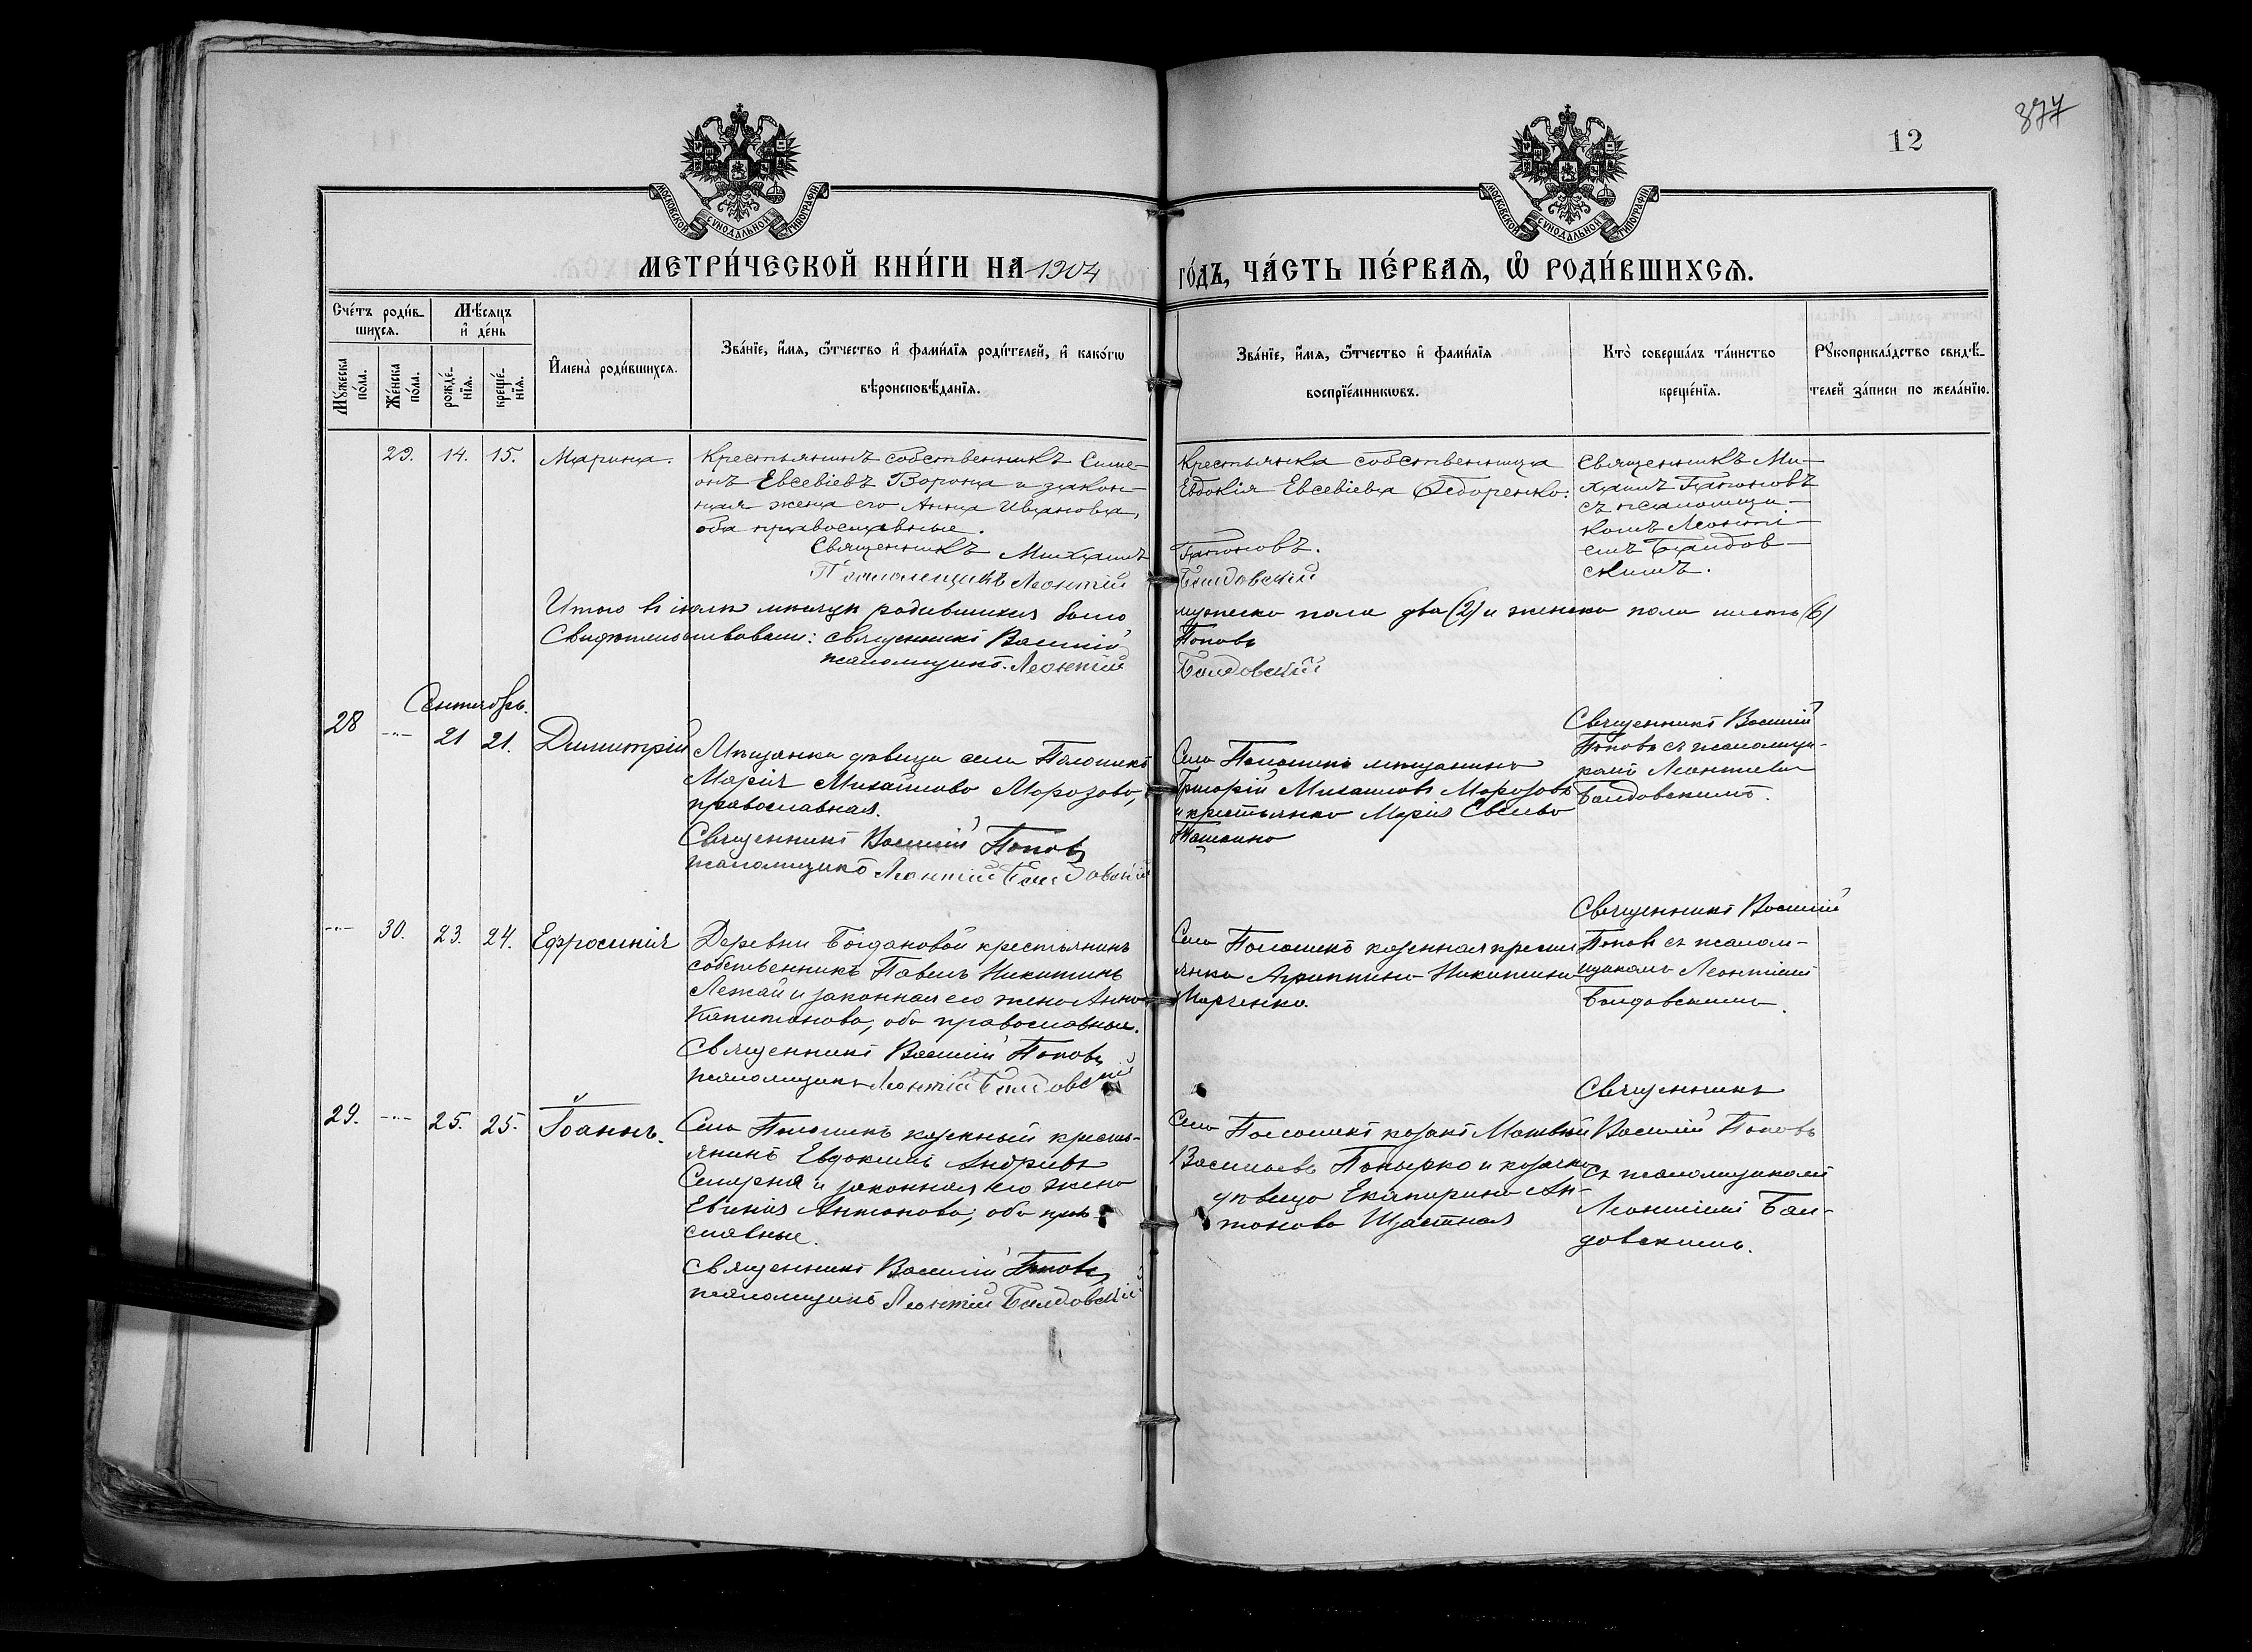 877
12
МОСКОВСКОЙ СѴНОДАЛЬНОЙ ТИПОГРАФІИ
МОСКОВСКОЙ СѴНОДАЛЬНОЙ ТИПОГРАФІИ
МЕТРИ́ЧЕСКОЙ КНИ́ГИ НА 1904 ГО́ДЪ, ЧА́СТЬ ПЕ́РВАѦ, Ѡ҆ РОДИ́ВШИХСѦ.
Сче́тъ роди́в-
шихсѧ.
Мѣ́сѧцъ
и҆ де́нь
Мꙋ́жеска
по́ла.
Же́нска
по́ла.
рожде́-
нїѧ.
креще́-
нїѧ.
И҆мена̀ роди́вшихсѧ.
Зва́нїе, и҆́мѧ, ѻ҆́тчество и҆ фами́лїѧ роди́телей, и҆ како́гѡ
вѣроисповѣ́данїѧ.
Зва́нїе, и҆́мѧ, ѻ҆́тчество и҆ фами́лїѧ
воспрїе́мникѡвъ.
Кто̀ соверша́лъ та́инство
креще́нїѧ.
Рꙋкоприкла́дство свидѣ́-
телей за́писи по жела́нїю.
29. 14. 15. Марина.
Крестьянинъ собственникъ Симе-
онъ Евсевіевъ Ворона и закон-
ная жена его Анна Ивановна,
оба православные.
Священникъ Михаилъ
Псаломщикъ Леонтій
Крестьянка собственница
Евдокія Евсевіева Федоренко.
Бандовскій
Священникъ Ми-
хаилъ
съ псаломщи-
комъ Леонті-
емъ Бандов-
скимъ.
Итого въ мѣсяцѣ родившихся было мужеска пола два (2) и женска пола шесть (6)
Свидѣтельствовали: священникъ Василій Поповъ
псаломщикъ Леонтій Бандовскій
Сентябрь.
28 -"- 21 21. Димитрій
Мѣщанка дѣвица села
Марія Михайлова Морозова,
православная.
Священникъ Василій Поповъ
псаломщикъ Леонтій Бандовскій
Села мѣщанинъ
Григорій Михаиловъ Морозовъ
и крестьянка Марія
Священникъ Василій
Поповъ съ псаломщи-
комъ Леонтіемъ
Бандовскимъ.
-"- 30. 23. 24. Ефросинія
Деревни Богдановой крестьянинъ
собственникъ Павелъ Никитинъ
Лежай и законная его жена Анна
Капитонова, оба православные.
Священникъ Василій Поповъ
псаломщикъ Леонтій Бандовскій
Села казенная кресть
янка Агриппина Никитина
Марченко.
Священникъ Василій
Поповъ съ псалом-
щикомъ Леонтіемъ
Бандовскимъ.
29. -"- 25. 25. Іоаннъ.
Села казенный кресть-
янинъ Евдокимъ Андреевъ
и законная его жена
Евгенія Антонова, оба пра-
славные.
Священникъ Василій Поповъ
псаломщикъ Леонтій Бандовскій
Села козакъ Матвѣй
Васильевъ и козачка
дѣвица Екатерина Ан-
тонова Щастная
Священникъ
Василій Поповъ
съ псаломщикомъ
Леонтіемъ Бан-
довскимъ.